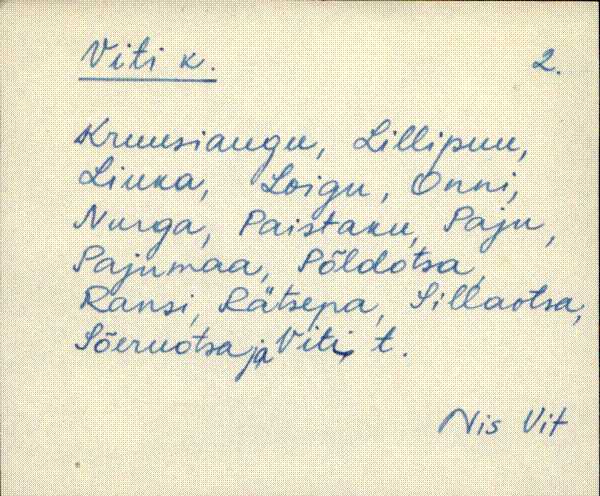 Viti k. 2.
Kruusiaugu, Lillipuu,
Liuka, Loigu, Onni,
Nurga, Paistaku, Paju,
Pajumaa, Põldotsa,
Ransi, Rätsepa, Sillaotsa,
Sõeruotsa ja Viti t.
Nis Vit